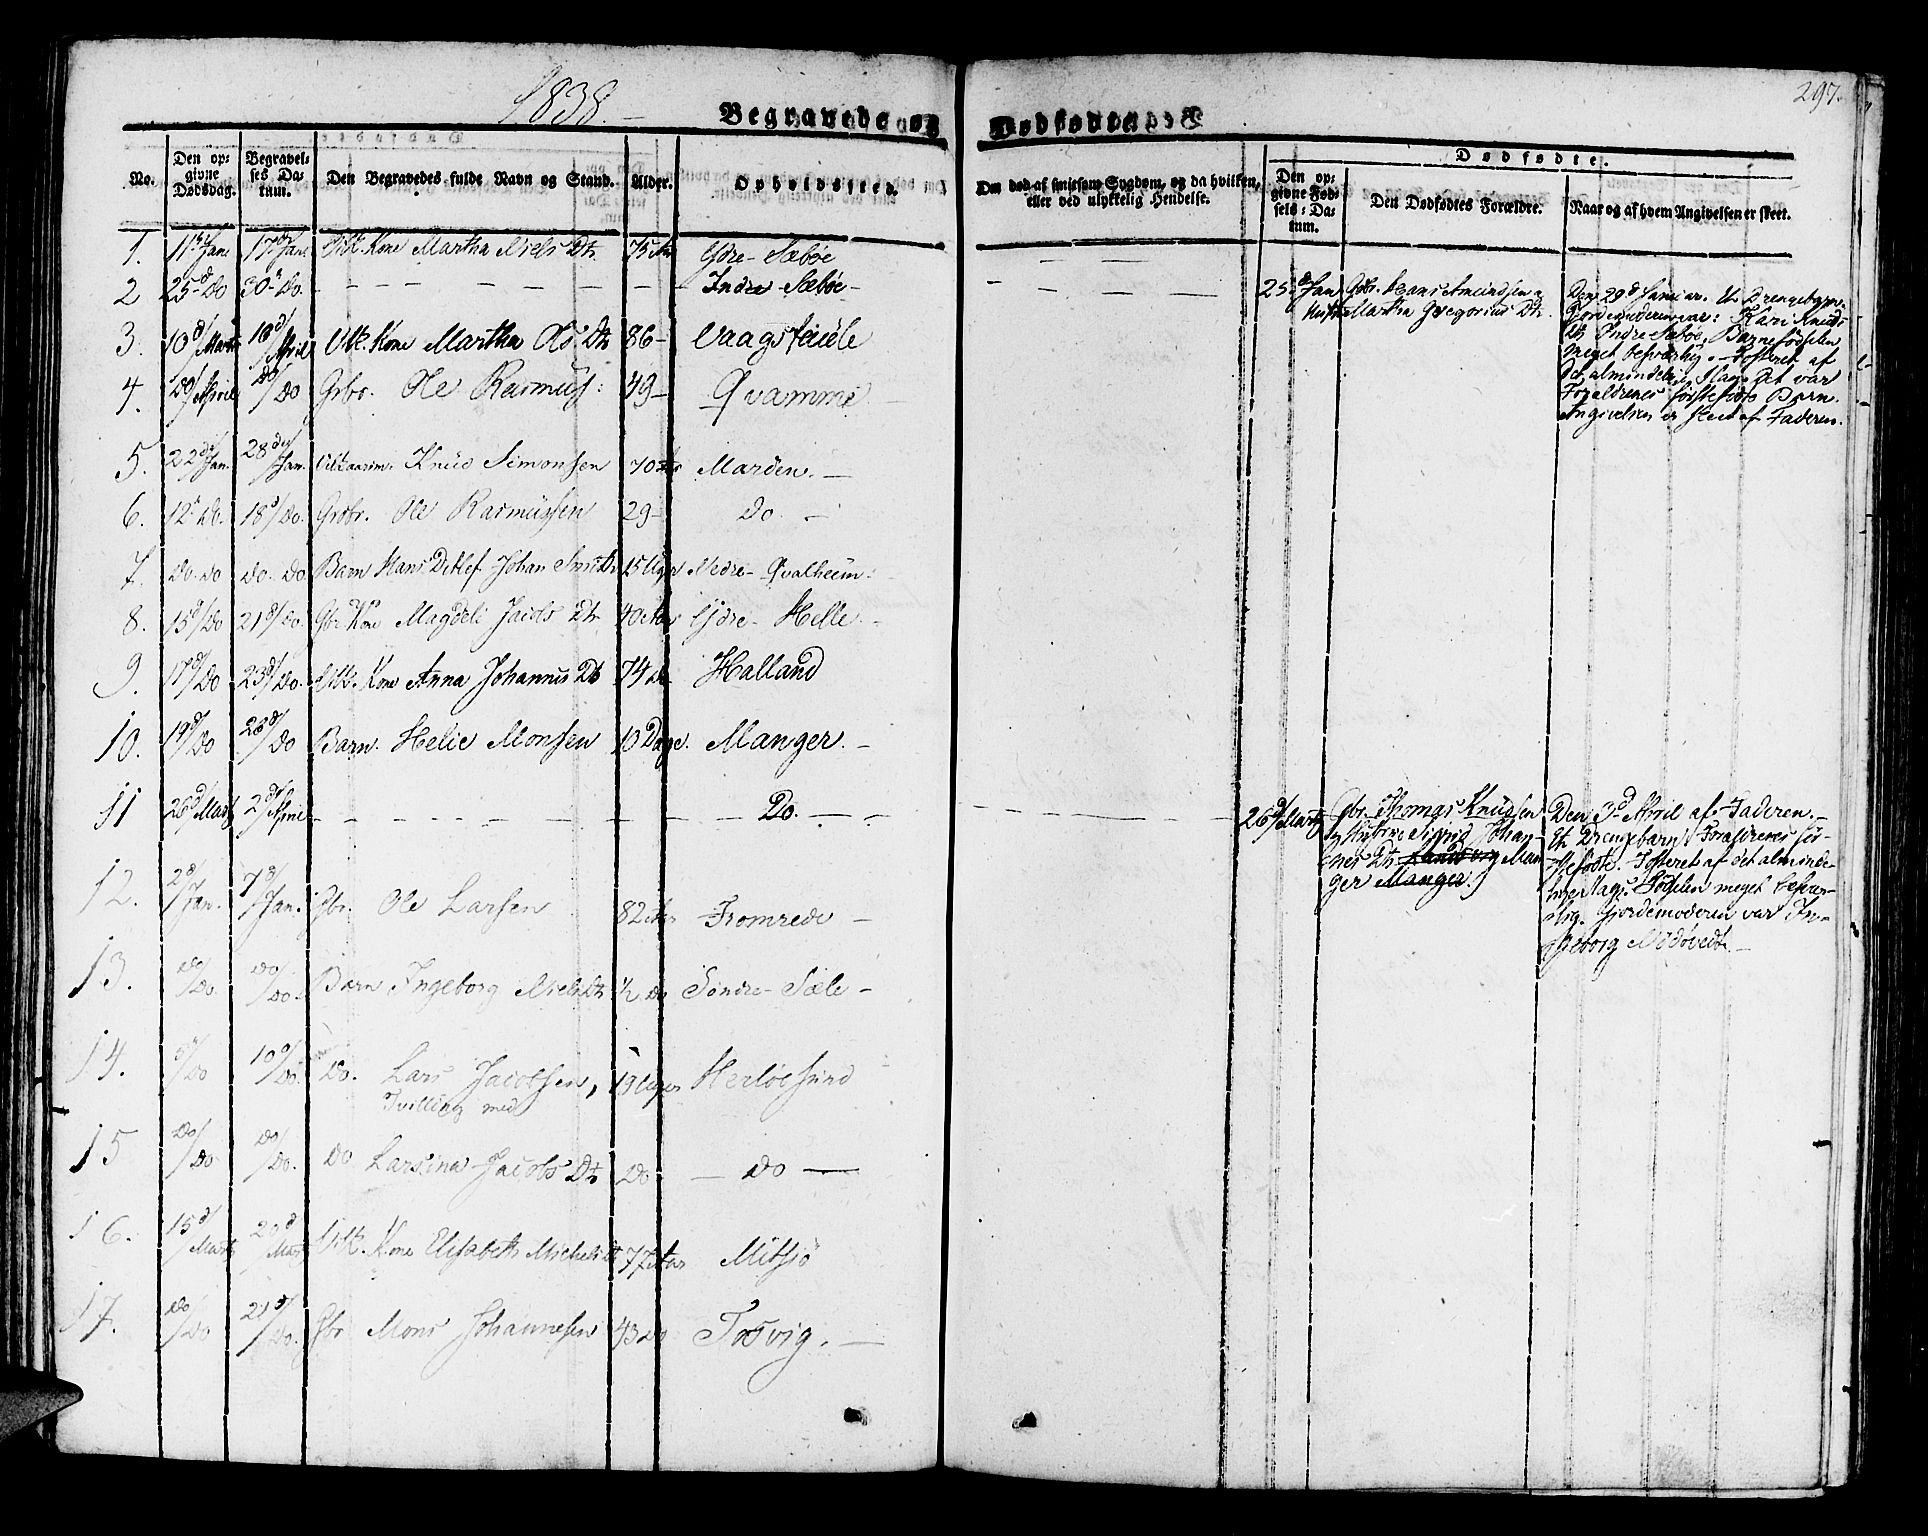 1838.
Begravede og Dødfødte
297.
No.
Den opgivne Dødsdag.
Begravelses Datum.
Den Begravedes fulde Navn og Stand.
Alder.
Opholdssted.
Om død af smitsom Sygdom, og da hvilken, eller ved ulykkelig Hendelse.
Dødfødte.
Den opgivne Fødsels-Datum.
Den Dødfødtes Forældre.
Naar og af hvem Angivelsen er skeet.
1. 11te Jan. 17d Jan. Vilk. Kone Martha Niels Dtr 75 Aar Ydre-Sæbøe
2 25d Do 30d Do. - - - - Indre Sæbøe -
25d Jan Gbr. Hans Amundsen og
Hustr. Martha Gregorius Dtr.
Den 29d Januar. Et Drengebarn.
Gjordemoderen var: Kari Knuds
Dtr Indre Sæbøe. Barnefødselen
meget besværlig. - Fosteret af
det almindelig Slag. Det var
Forældrenes første fødte Barn.
Angivelsen er skeet af Faderen.
3. 10d/Marts 16d/April Vilk. Kone Martha Ols Dtr 86 - Vaagsteiële
4. Do/April Do/Do Grbr. Ole Rasmus: 49 - Qvamme -
5. 22d/Jan. 28de/Jan. Knud Simonsen 70 Aar Marøen. -
6. 12d Do. 18d/Do. Grdbr. Ole Rasmussen 29 - Do. -
7. Do. Do Do. Do. Barn Hans Detlef Johan Smith 15 Uger Nedre-Qvalheim.
8. 15d/Do 21d/Do. Gbr Kone Magdeli Jacobs Dtr 40 Aar Ydre-Helle. -
9. 17d/Do 23d/Do. Vilk. Kone Anna Johannes Dt 74 Do Halland
10. 19d/Do 28d/Do Barn. Helie Monsen 10 Dage. Manger. -
11 26d/Marts 2d/April - - - - Do. - -
26d/Marts Gbr. Thomas Knudsen
og Hustrue Sigrid Johan-
nes Dtr Man
ger Manger.)
Den 3d April af Faderen. -
Et Drengebarn Forældrenes før-
stefødte. Fosteret af det alminde-
lige Slags. Fødselen meget besvær-
lig. Gjordemoderen var In-
geborg Mødøvedt -
12. 2d/Jan. 7d/Jan. Gbr. Ole Larsen 82 Aar Fromrede -
13. Do/Do. Do/Do. Barn Ingeborg Niels Dtr 1/2 Do Søndre-Sæle -
14. 5d/Do 10d/Do. Do. Lars Jacobsen, 19 Uger Herløesund
Tvilling med
15 Do/Do Do/Do. Do Larsina Jacobs Dtr Do - Do -
16. 15d/Marts 20d/Marts Vilk. Kone Elisabeth Michels Dt 77 Aar Mitsiø
17. Do/Do 21d/Do. Gbr Mons Johannesen 43 Do Tosvig. -